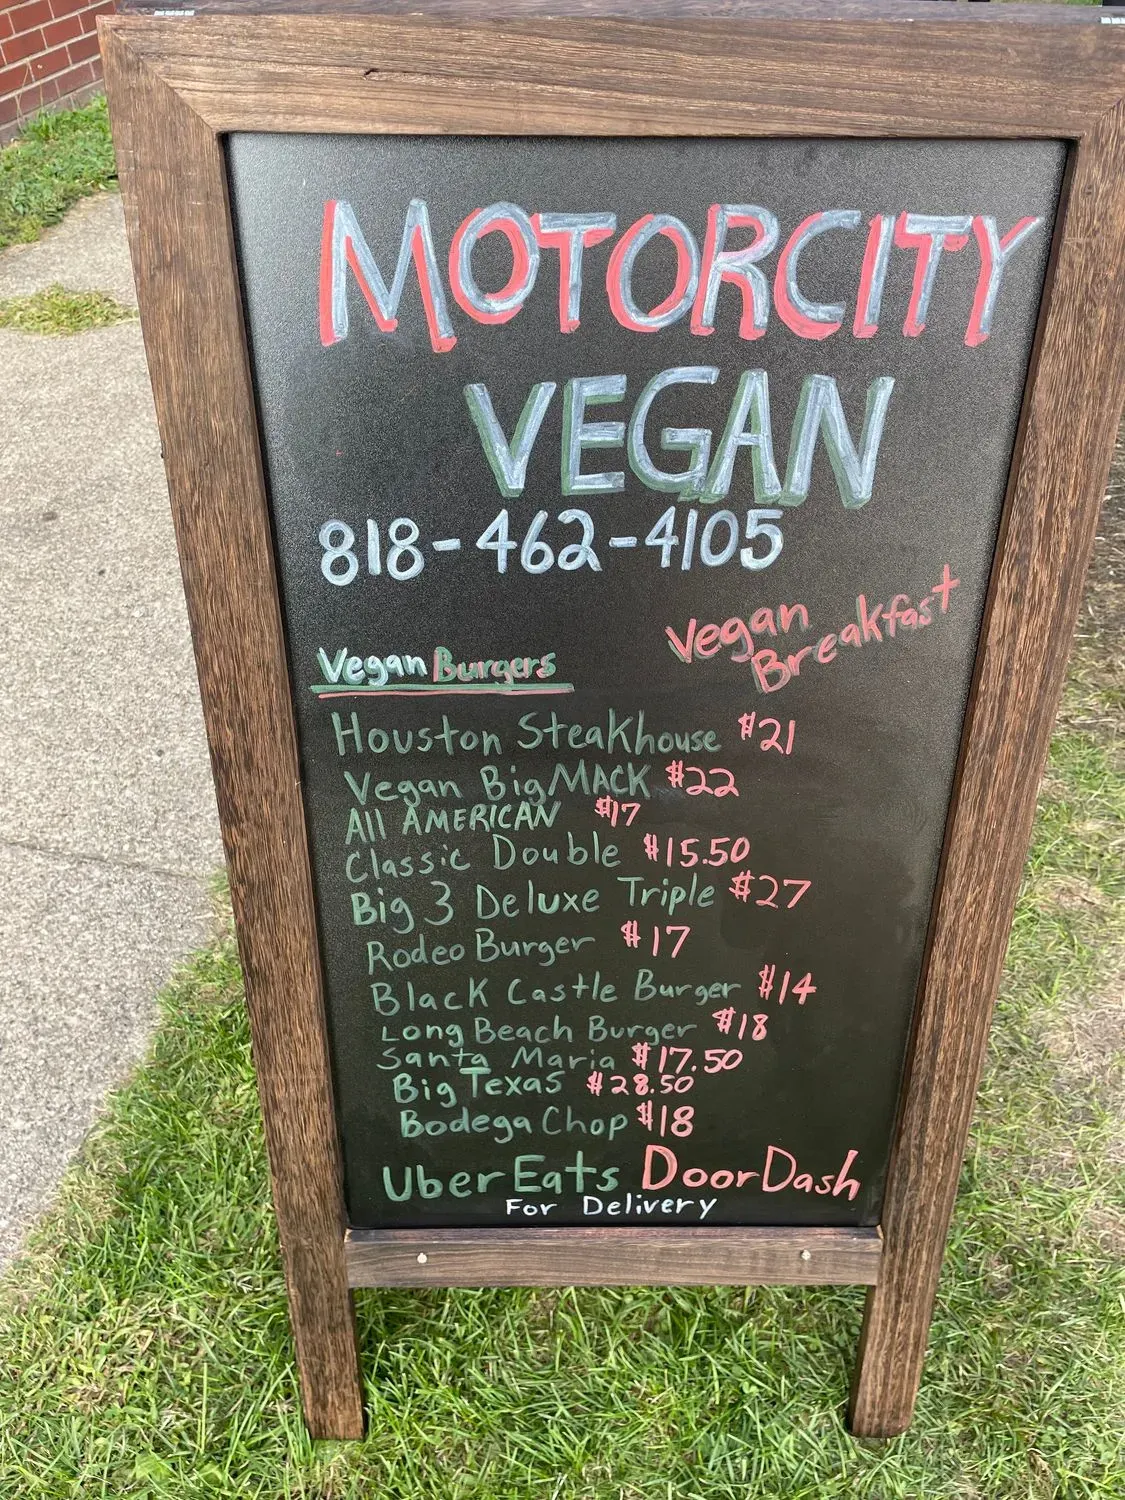 MOTORCITY
VEGAN
818-462-4105
Vegan
Breakfast
Vegan Burgers
Houston Steakhouse $21
Vegan Big MACK $22
All AMERICAN $17
Classic Double $15.50
Big 3 Deluxe Triple $27
Rodeo Burger $17
Black Castle Burger $14
Long Beach Burger $18
Santa Maria $17.50
Big Texas $28.50
Bodega Chop $18
UberEats DoorDash
For Delivery